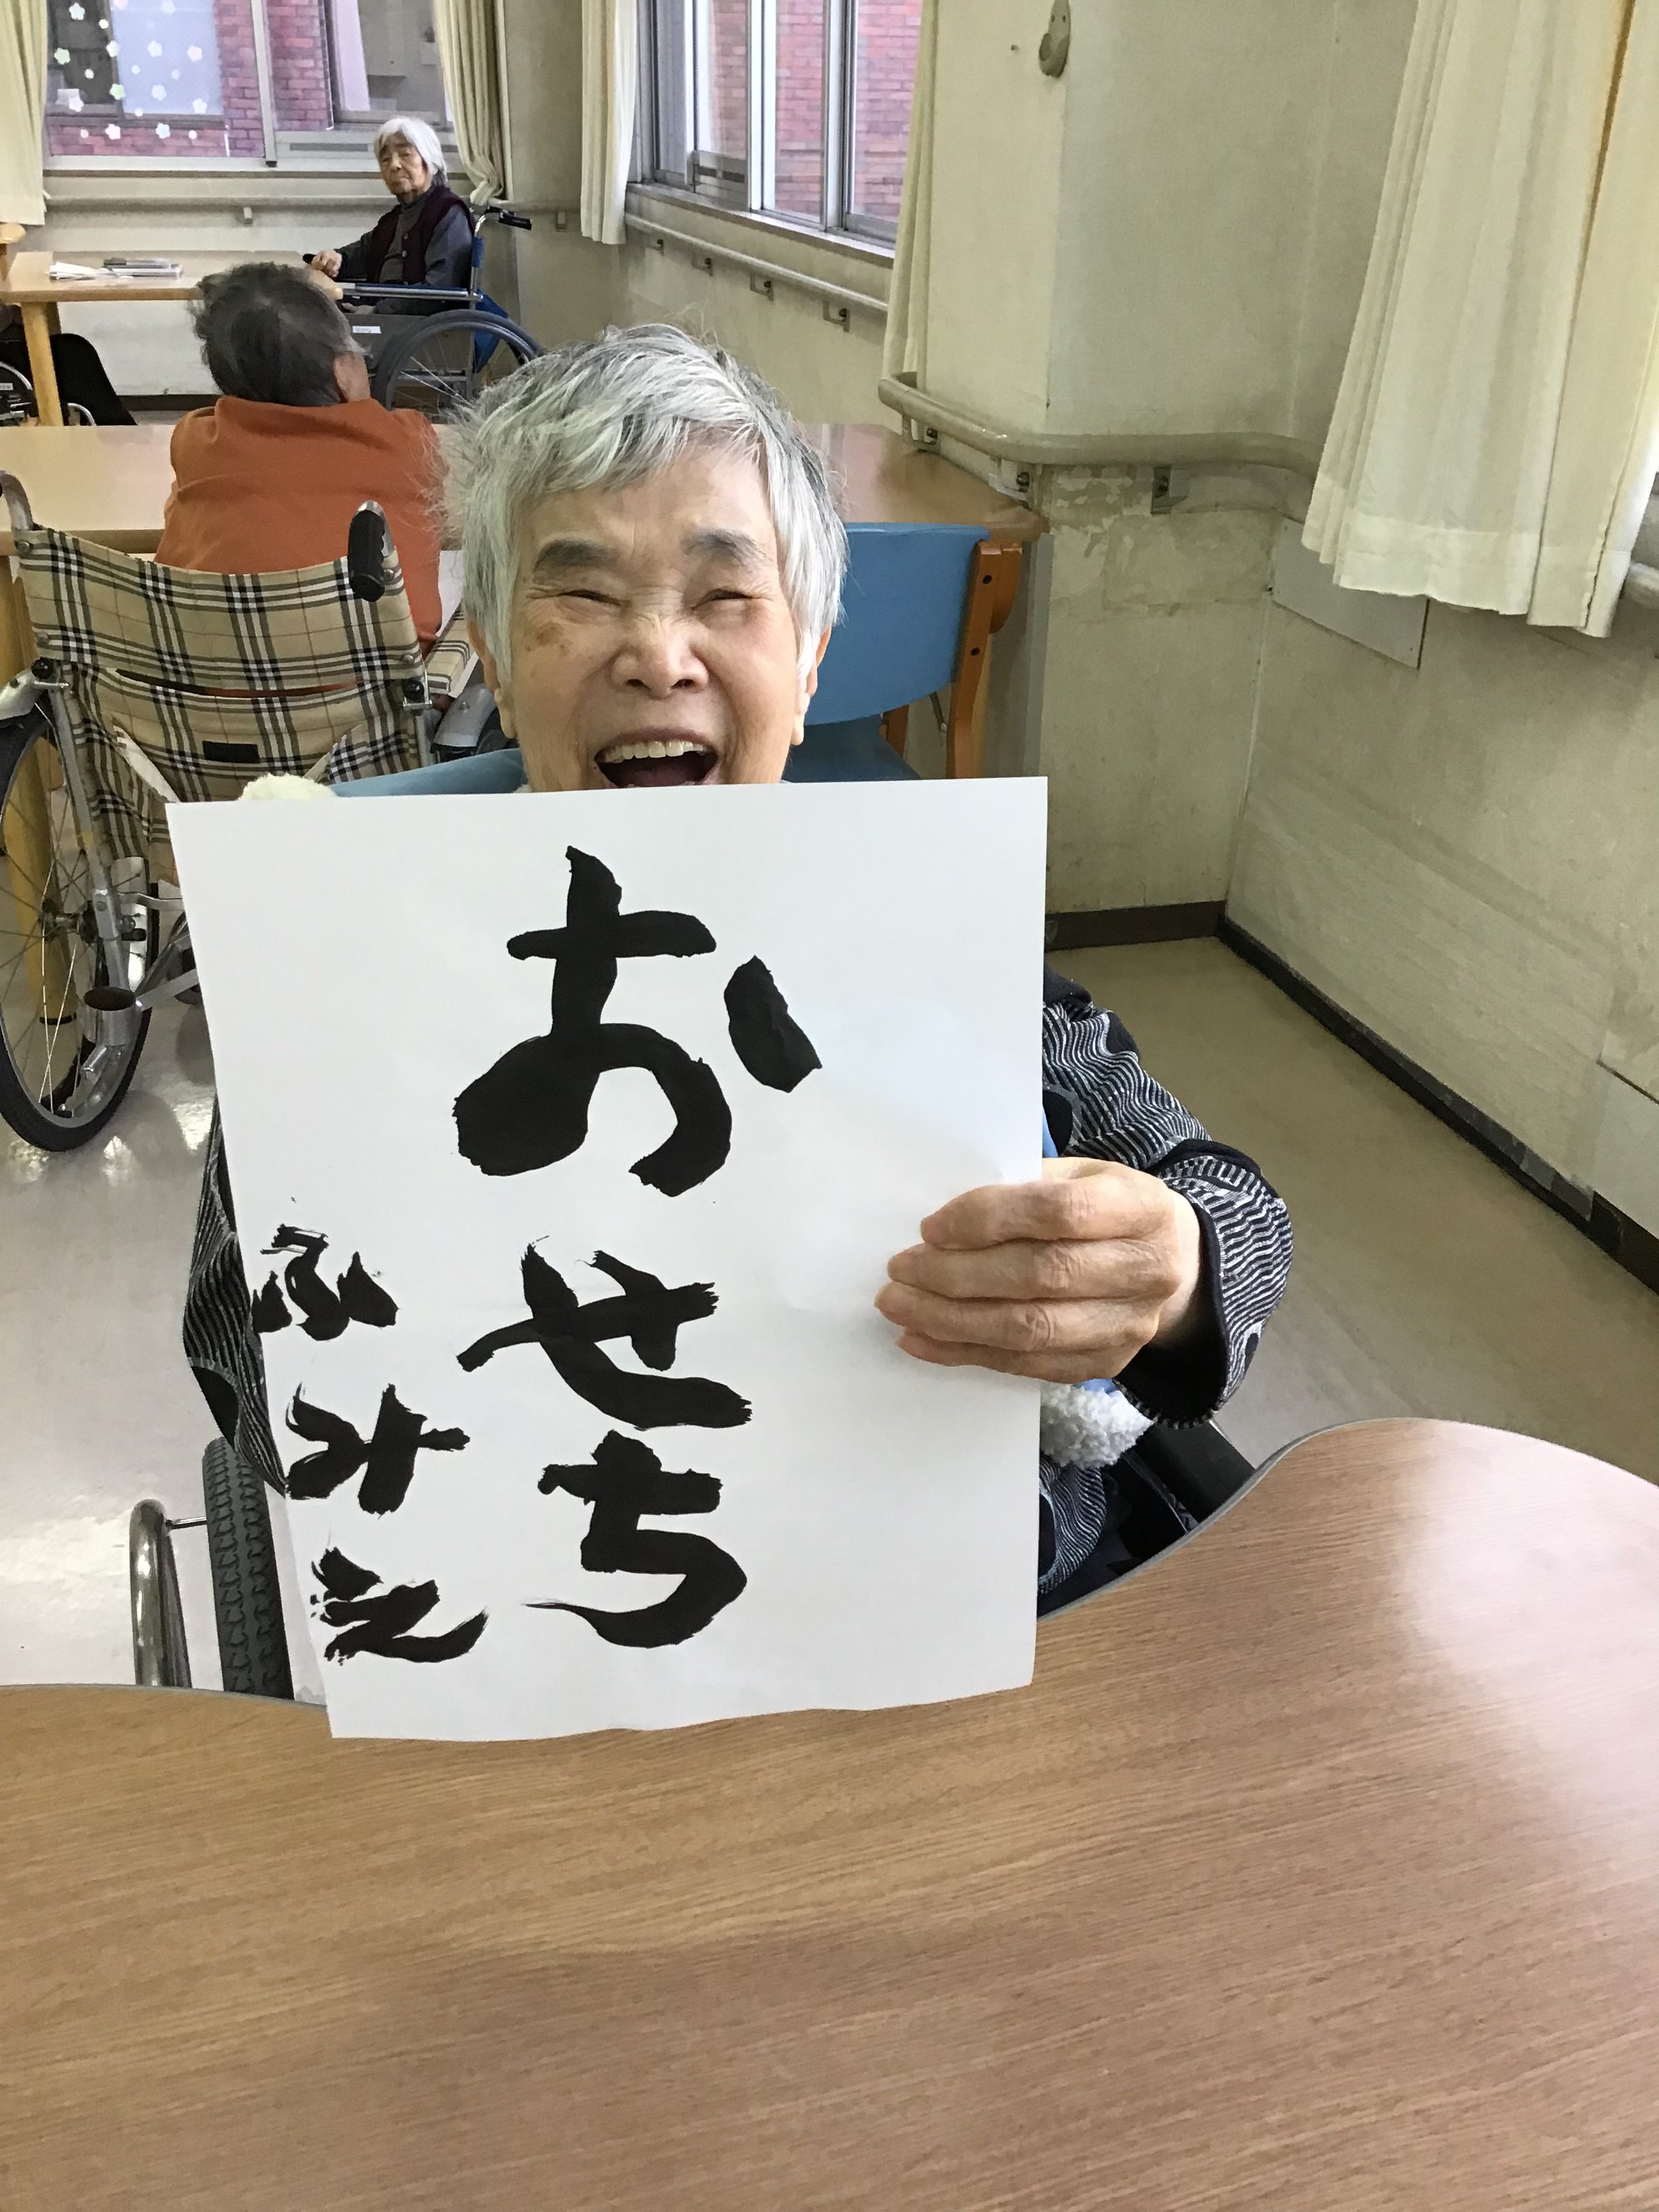 おせち
ふみえ